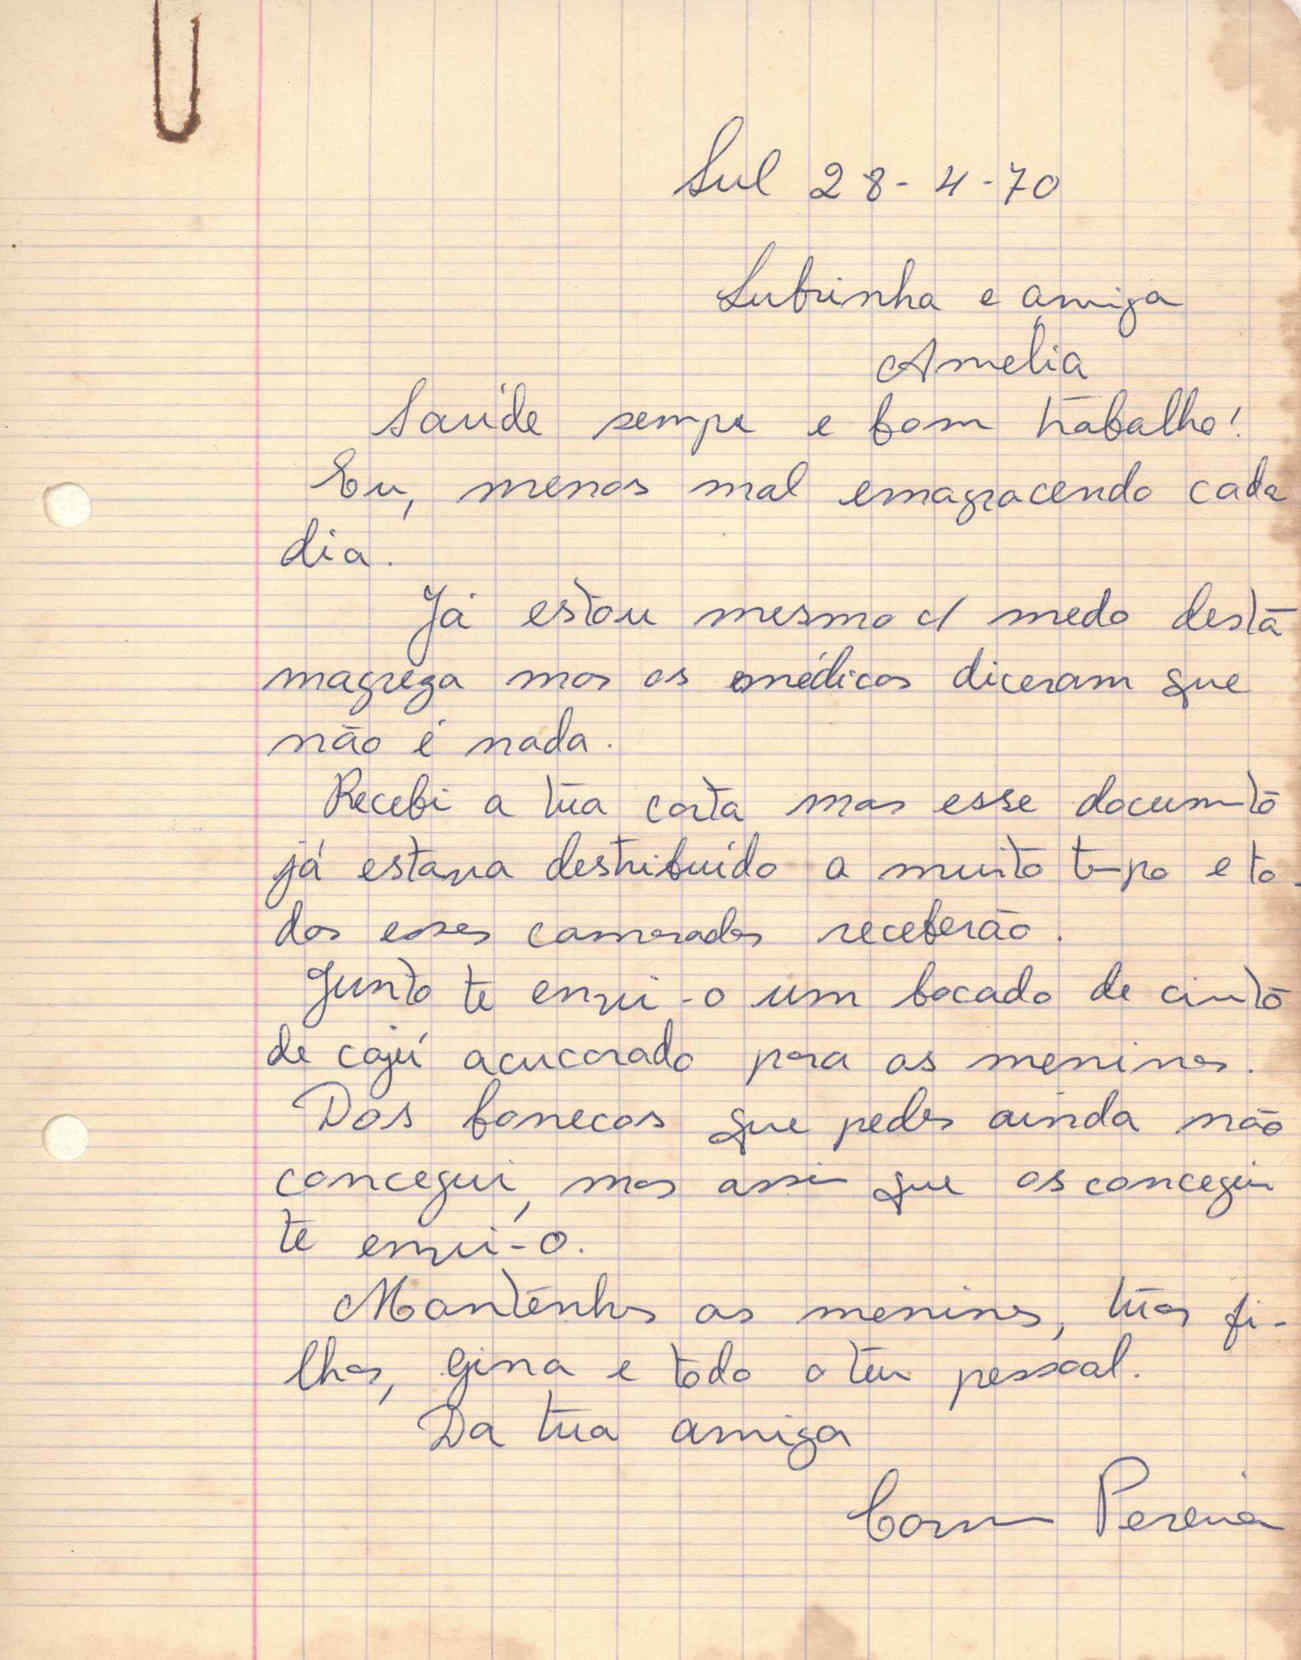 Sul 28-4-70
Subrinha e amiga
Amelia
Saúde sempre e bom trabalho!
Eu, menos mal emagracendo cada
dia.
Já estou mesmo c/ medo desta
magreza mas os médicos diceram que
não é nada.
Recebi a tua carta mas esse documto
já estava destribuído a muito tempo e to-
dos esses camaradas receberão.
Junto te envi-o um bocado de cinto
de cajú acucarado para as meninas.
Das bonecas que pedes ainda não
concegui, mas assim que os concegui
te envi-o.
Mantenhas as meninas, tuas fi-
lhas, Gina e todo o teu pessoal.
Da tua amiga
Carmen Pereira